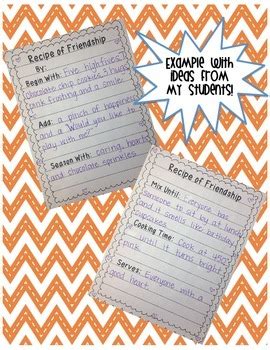 Example with
ideas from
my students!
Recipe of Friendship
By:
Begin With: Five highfives,
chocolate chip cookies, 3 hugs,
pink frosting and a smile.
Add: a pinch of happiness
and a "Would you like to
play with me?"
Season With: caring, hearts
and chocolate sprinkles!
Recipe of Friendship
Mix Until: Everyone has
someone to sit by at lunch
and it smells like birthday
cupcakes.
Cooking Time: Cook at 450°
until it turns bright
pink.
Serves: Everyone with a
good heart.